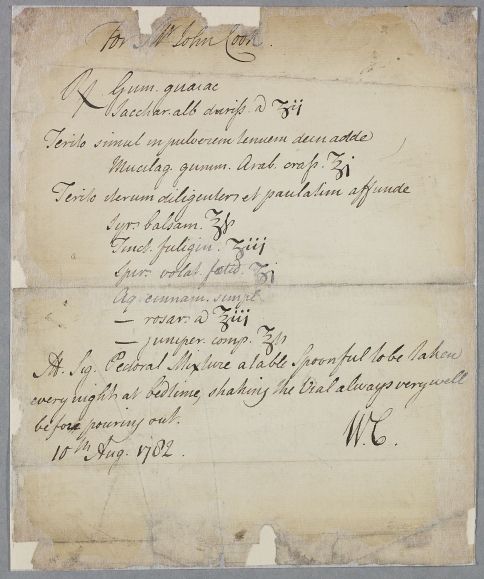 For Mr John Cook.
℞ Gum. guaiac
Sacchar. alb duriss. a ʒij
Terito simul in pulverem tenuem dein adde
Mucilag. gumm. Arab. crass. ʒj
Terito iterum diligenter, et paulatim affunde
Syr. balsam. ʒß
Tinct. fuligin. ʒiij
Spir. volat. fœtid. ʒj
Aq. cinnam. simpl.
— rosar. a ʒiij
— juniper. comp. ʒß
M. Sig. Pectoral Mixture a table Spoonful to be taken
every night at bedtime, shaking the Vial always very well
before pouring out.
W.C.
10th Aug. 1782.